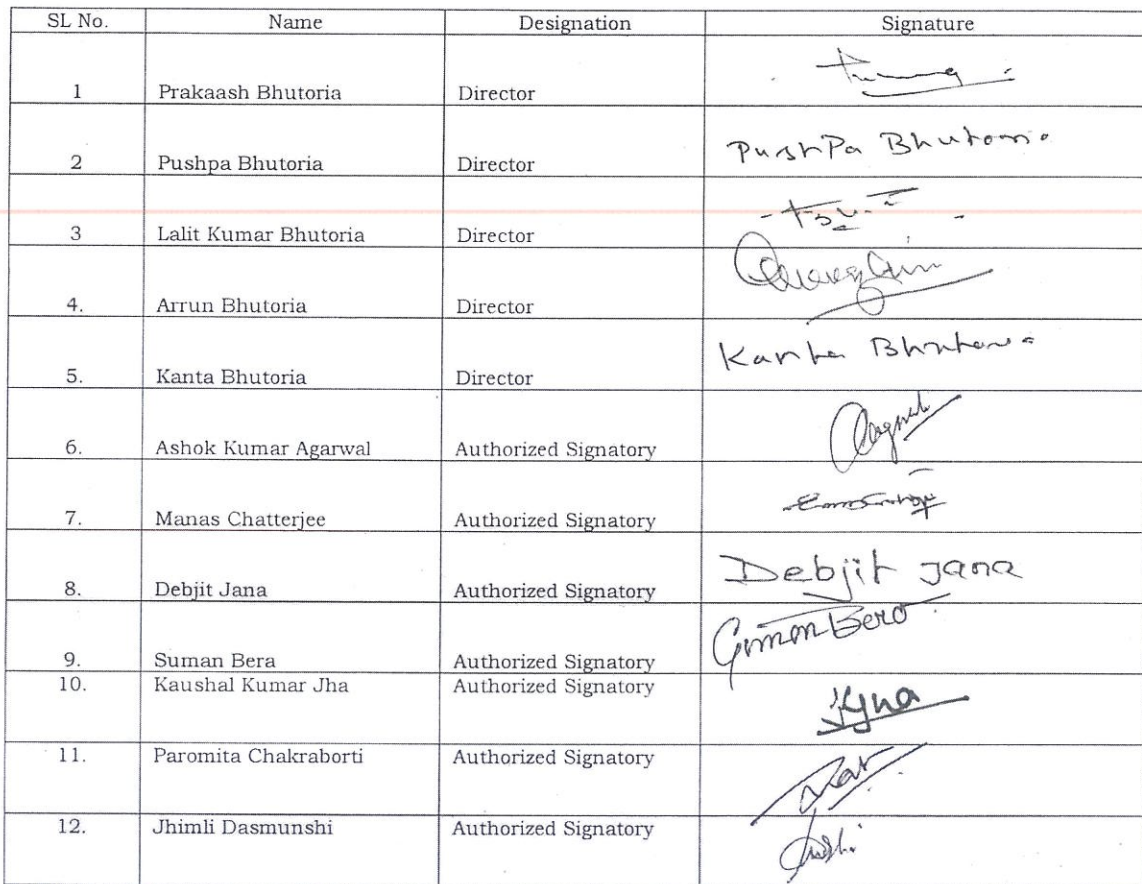 SL No. Name Designation Signature
1 Prakaash Bhutoria Director
2 Pushpa Bhutoria Director PushPa Bhutoria
3 Lalit Kumar Bhutoria Director
4. Arrun Bhutoria Director
5. Kanta Bhutoria Director Kanta Bhutoria
6. Ashok Kumar Agarwal Authorized Signatory
7. Manas Chatterjee Authorized Signatory
8. Debjit Jana Authorized Signatory Debjit Jana
9. Suman Bera Authorized Signatory Suman Bera
10. Kaushal Kumar Jha Authorized Signatory
11. Paromita Chakraborti Authorized Signatory
12. Jhimli Dasmunshi Authorized Signatory